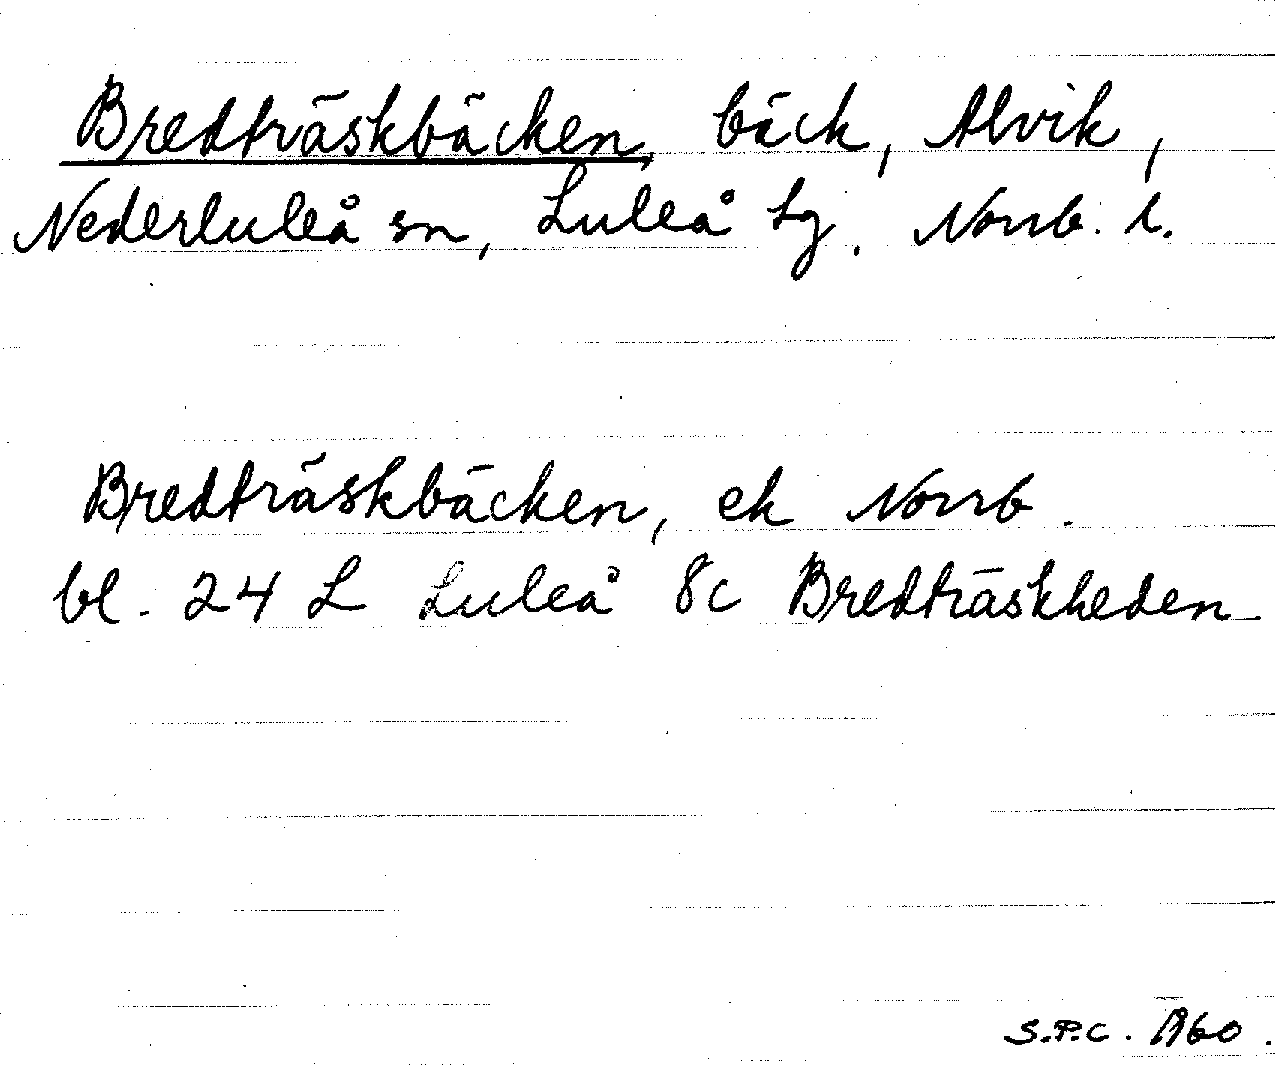 Bredträskbäcken, bäck, Alvik,
Nederluleå sn, Luleå tg. Norrb. l.
Bredträskbäcken, ek Norrb.
bl. 24 L Luleå 8c Bredträskheden
S.P.C. 1960.